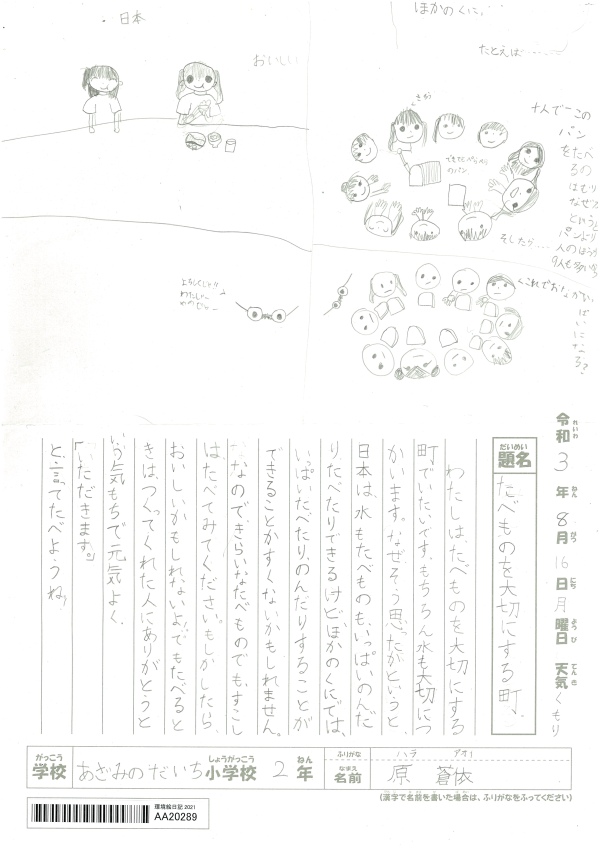 日本
おいしい
ほかのくに、
たとえば……
さら
十人で一この
パン
をたべ
るの
はむり
なぜ
というと
パンより
人のほうが
9人も多いから
そしたら……
これでおなかがい
ぱいに
なる?
令和3年8月16日月曜日 天気くもり
題名 たべものを大切にする町、
わたしは、たべものを大切にする
町でいたいです。もちろん水も大切につ
かいます。なぜそう思ったかというと、
日本は、水もたべものも、いっぱいのんだ
りたべたりできるけどほかのくにでは、
いっぱいたべたり、のんだりすることが
できることがすくないかもしれません。
なので、きらいなたべものでも、すこし
は、たべてみてください。もしかしたら、
おいしいかもしれないよ!でもたべると
きは、つくってくれた人にありがとうと
いう気もちで元気よく、
「いただきます。」
と、言ってたべようね!
がっこう
学校 あざみのだいち小学校 2年
ふりがな ハラ アオイ
名前 原 蒼依
(漢字で名前を書いた場合は、ふりがなをふってください)
環境絵日記 2021
AA20289